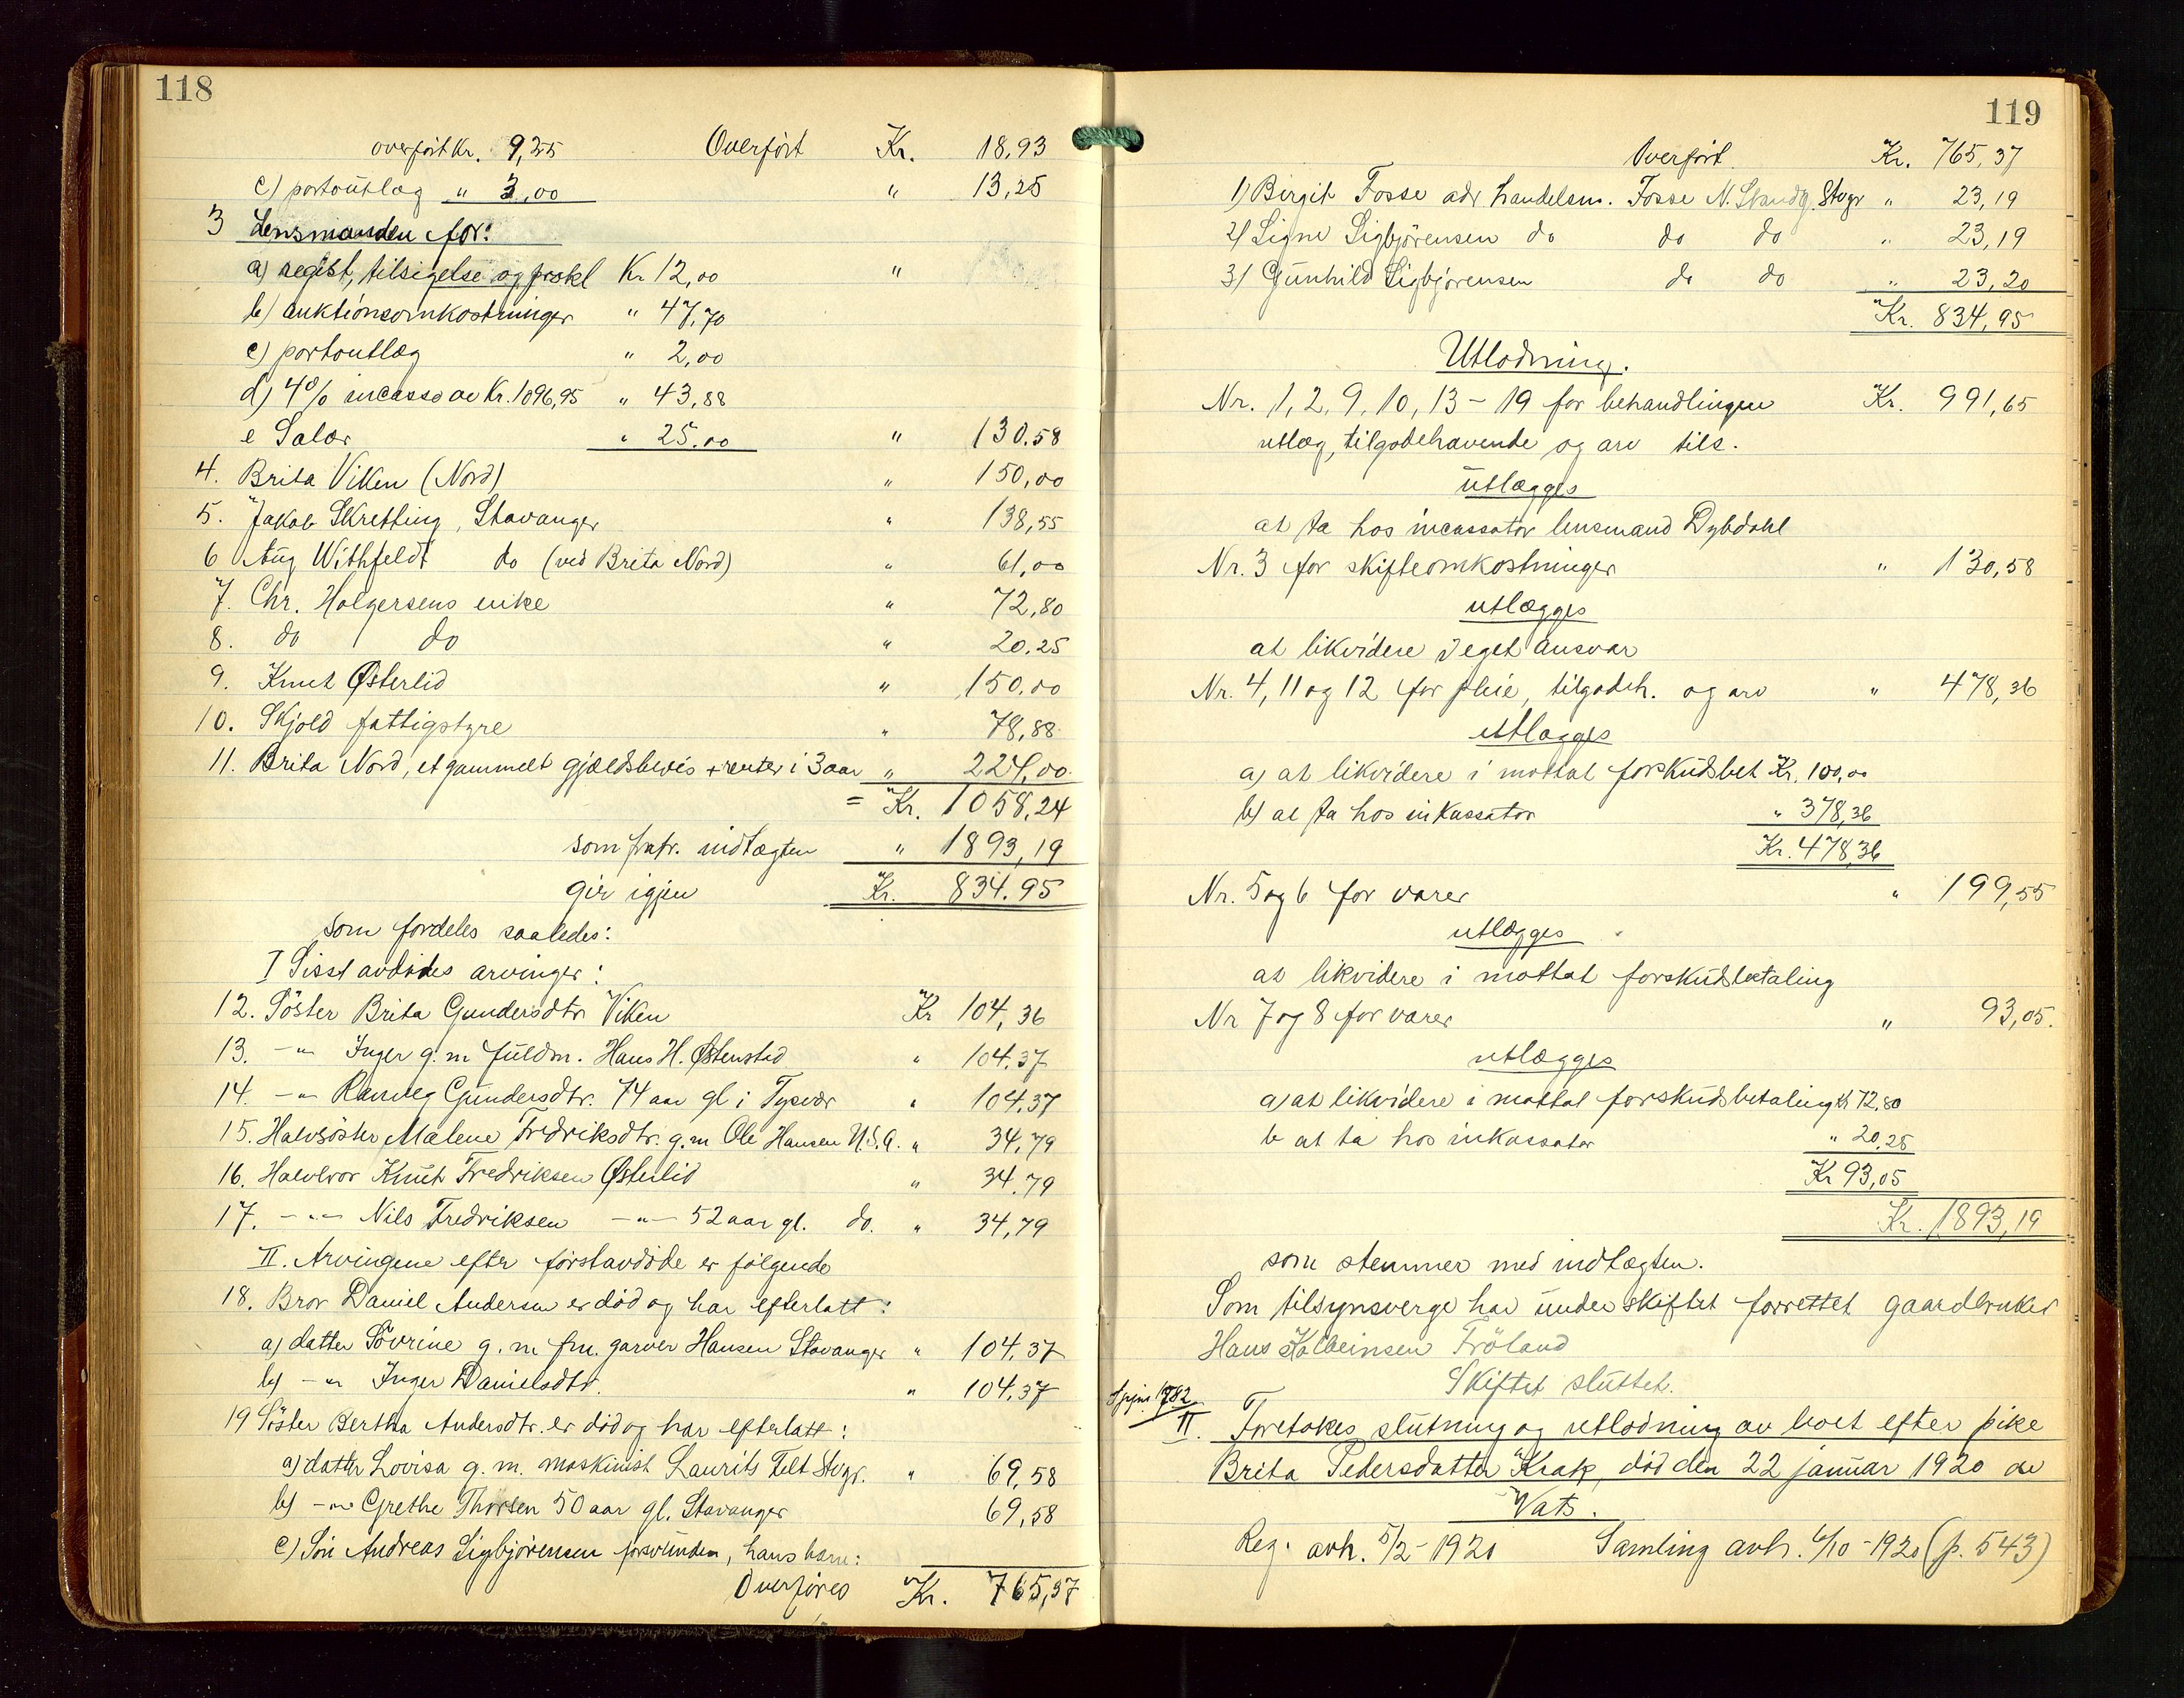 118
overført Kr. 9,25 Overført Kr. 18,93
c) portoutlæg " 3,00 " 13,25
3 Lensmanden for:
a) regist, tilsigelse og prokl Kr 12,00 "
b) auktionsomkostninger " 47,70
c) portoutlæg " 2,00
d) 4% incasso av Kr. 1096,95 " 43,88
e Salær " 25.00 " 130.58
4. Brita Viken (Nord) " 150,00
5. Jakob Skretting, Stavanger " 138,55
6 Aug Withfeldt do (ved Brita Nord) " 61,00
7. Chr. Holgersens enke " 72,80
8. do do " 20.25
9. Knut Østerlid " 150.00
10. Skjold fattigstyre " 78,88
11. Brita Nord, et gammelt gjældsbevis + renter i 3 aar " 224,00
= Kr. 1058,24
som fratr. indtægten " 1893,19
gir igjen Kr. 834.95
som fordeles saaledes:
I Sisst avdødes arvinger:
12. Söster Brita Gundersdtr Viken Kr 104,36
13. -"- Inger g. m fuldm. Hans H. Østenstad " 104.37
14. -"- Ranveg Gundersdtr. 74 aar gl i Tysvær " 104,37
15. Halvsöster Malene Fredriksdtr. g. m Ole Hansen U.S.A. " 34,79
16. Halvbror Knut Fredriksen Østerlid " 34.79
17. -"- Nils Fredriksen -"- 52 aar gl. do. " 34,79
II. Arvingene efter förstavdöde er følgende
18. Bror Daniel Andersen er död og har efterlatt:
a) datter Sövrine g. m fm. garver Hansen Stavanger " 104,37
b) -"- Inger Danielsdtr. " 104,37
19 Söster Bertha Andersdtr. er död og har efterlatt:
a) datter Lovisa g. m. maskinist Laurits Telt Stvgr. " 69,58
b) -"- Grethe Thorsen 50 aar gl. Stavanger 69,58
c) Sön Andreas Sigbjörensen forsvunden, hans barn:
Overføres Kr. 765,37
119
Overført Kr. 765,37
1) Birgit Fosse adr handelsm. Fosse N. Strandg. Stvgr " 23,19
2) Signe Sigbjörensen do do do " 23,19
3) Gunhild Sigbjörensen do do " 23,20
Kr. 834,95
Utlodning.
Nr. 1, 2, 9, 10, 13 - 19 for behandlingen Kr. 991,65
utlæg, tilgodehavende og arv tils.
utlægges
at ta hos incassator lensmand Dybdahl
Nr. 3 for skifteomkostninger " 130,58
utlægges
at likvidere i eget ansvar
Nr. 4, 11 og 12 for pleie, tilgodeh. og arv " 478,36
utlægges
a) at likvidere i mottat forskudsbet Kr. 100,00
b) at ta hos inkassator " 378,36
Kr. 478,36
Nr. 5 og 6 for varer " 199,55
utlægges
at likvidere i mottat forskudsbetaling
Nr 7 og 8 for varer " 93,05.
utlægges
a) at likvidere i mottat forskudsbetaling Kr 72,80
b at ta hos inkassator " 20,25
Kr 93,05
Kr. 1893,19
som stemmer med indtægten.
Som tilsynsverge har under skiftet forrettet gaardbruker
Hans Kolbeinsen Fröland
Skiftet sluttet.
1782
II. Foretokes slutning og utlodning av boet efter pike
Brita Pedersdatter Krak, död den 22 januar 1920 av
Vats.
Reg. avh. 5/2 - 1920 Samling avh. 6/10 - 1920 (p. 543)